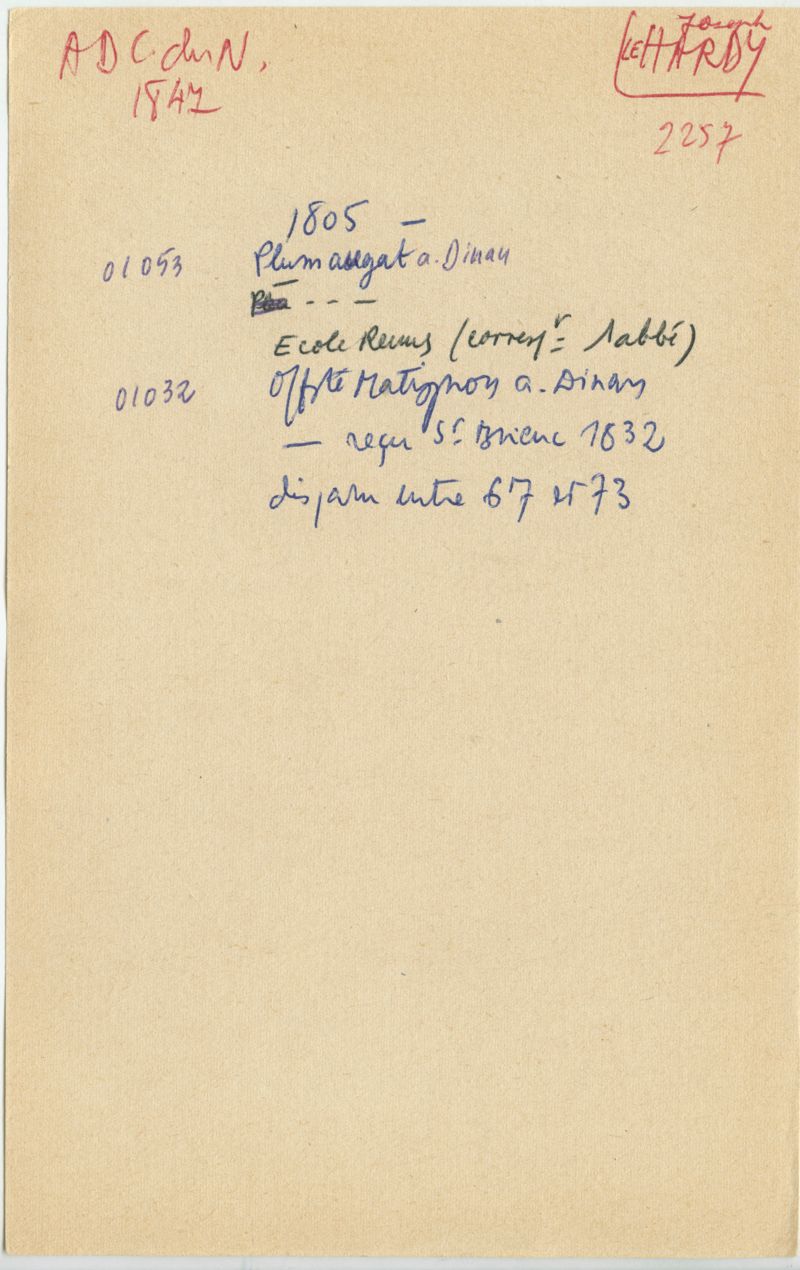 A D C. du N.
1847
Joseph
LE HARDY
2257
1805 —
01053 Plumaugat a. Dinan
- - —
Ecole Rennes (corresp r = 1 abbé)
01032 Off. Matignon a. Dinan
— reçu St Brieuc 1832
disparu entre 67 et 73